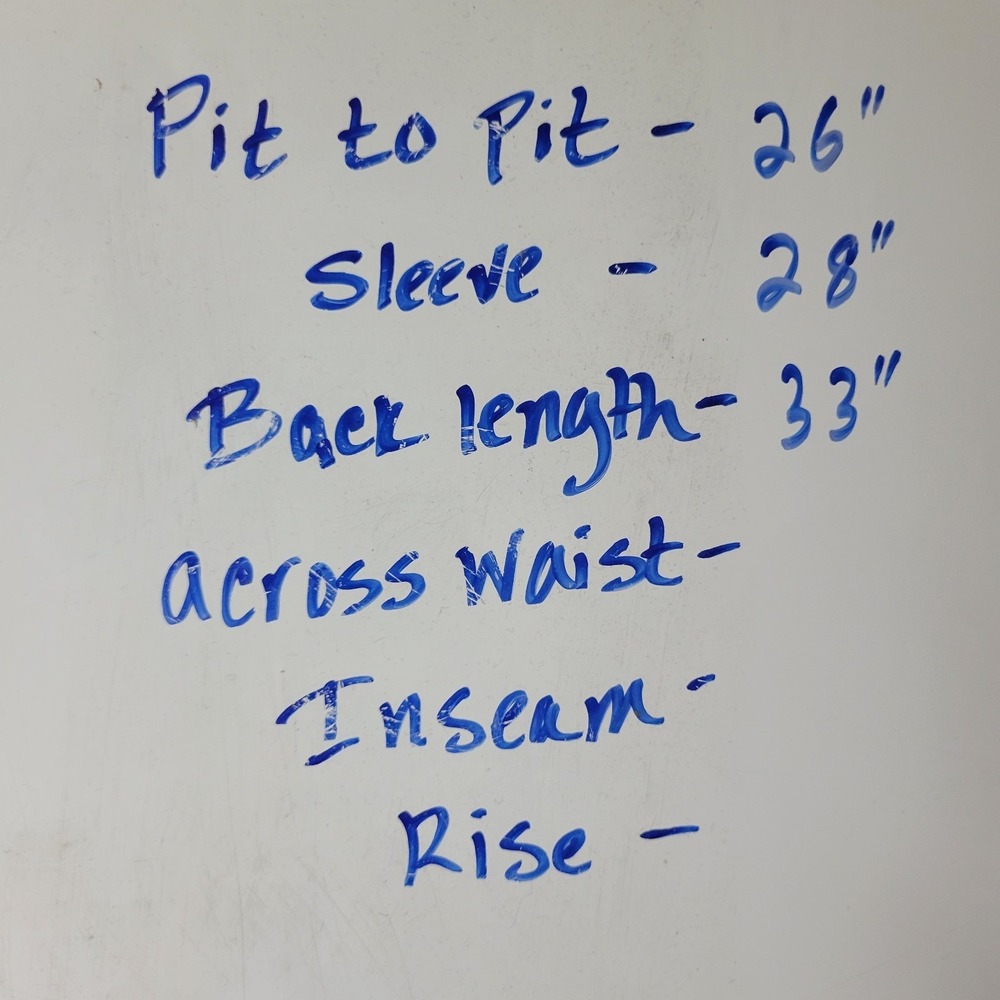 Pit to Pit - 26"
Sleeve - 28"
Back length - 33"
Across Waist -
Inseam -
Rise -